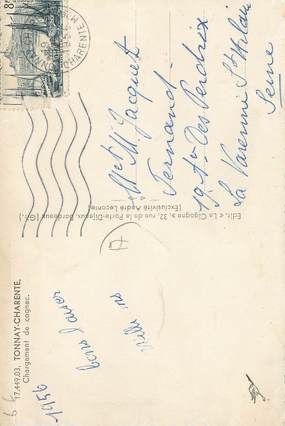 17.449.03. TONNAY-CHARENTE.
Chargement de cognac.
Bons baisers
1956
Édit. « La Cigogne », 32, rue de la Porte-Dijeaux, Bordeaux
[Exclusivité André Leconte]
A
Mr et M. Jacquet
Fernand
19 Av. Des Perdrix
La Varenne St Hilaire
Seine